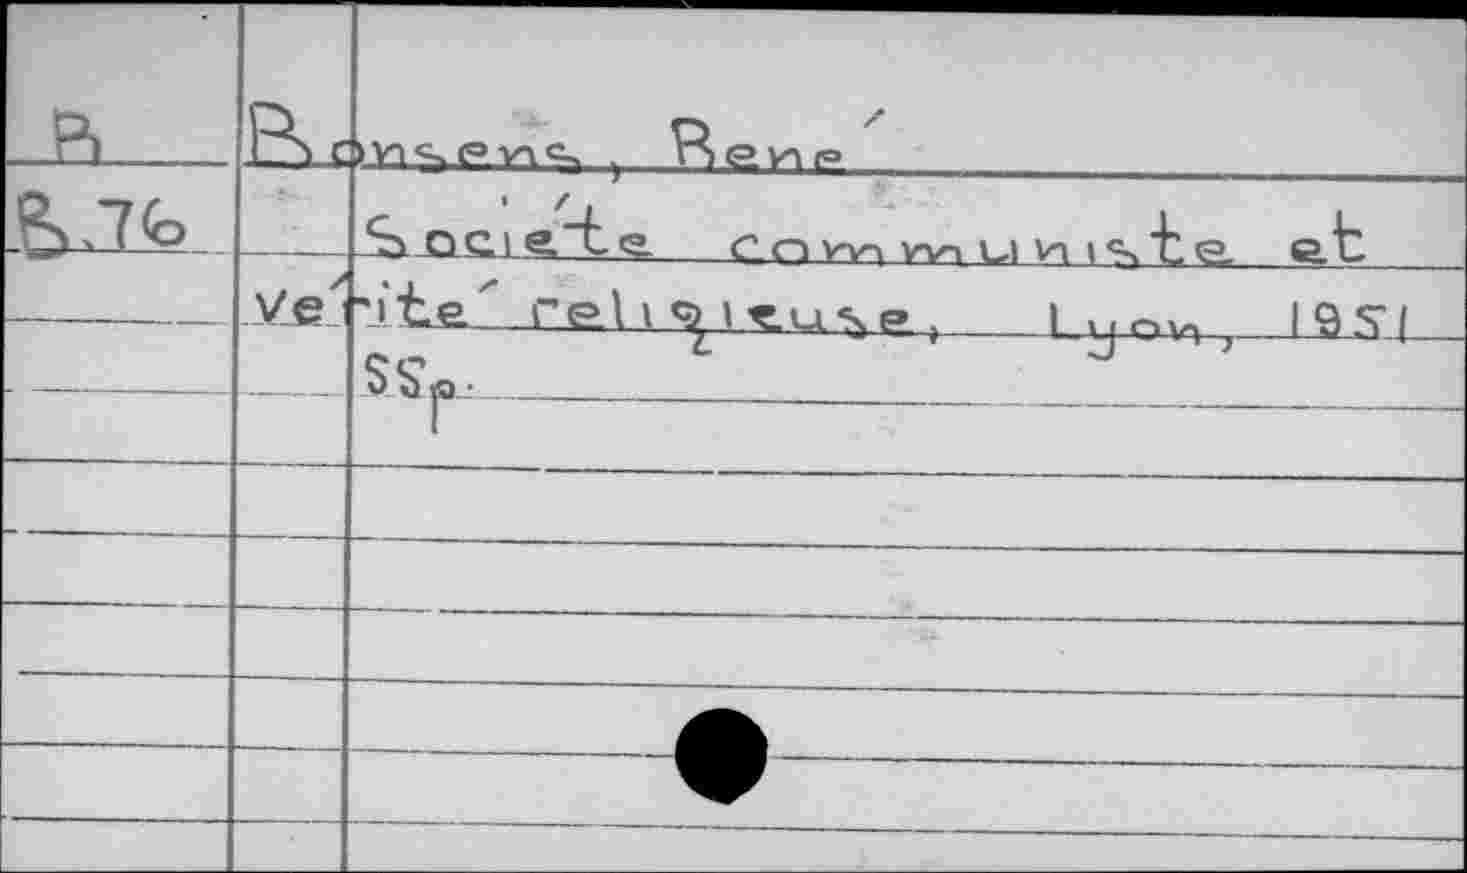 R Ronsens, René
R.76 Société communiste et
vérité religieuse, Lyon, 1951
55p.